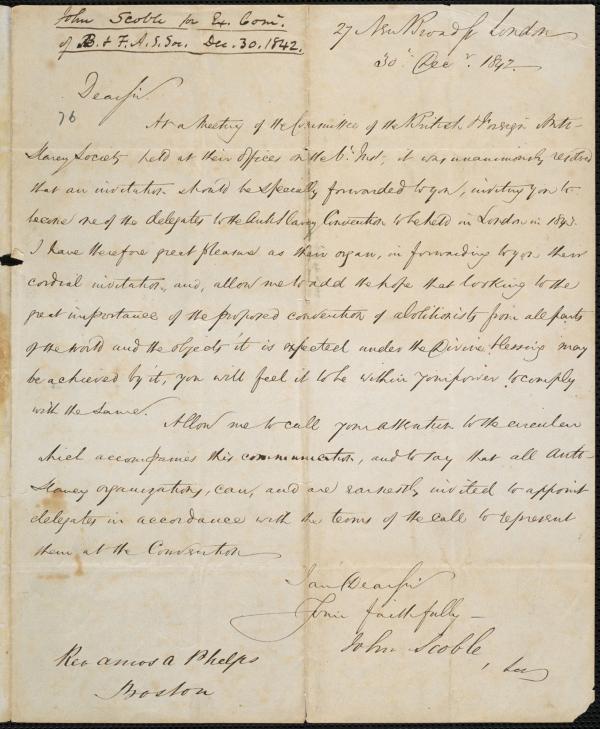 John Scoble for Ex. Com.
of B. & F. A. S. Soc. Dec. 30. 1842.
27 New Broad St London
30th Decr. 1842
Dear Sir.
76
At a Meeting of the Committee of the British & Foreign Anti-
Slavery Society held at their offices on the Inst; it was unanimously resolved
that an invitation should be specially forwarded to you, inviting you to
become one of the delegates to the Anti Slavery Convention to be held in London in 1843.
I have therefore great pleasure as their organ, in forwarding to you their
cordial invitation, and, allow me to add the hope that looking to the
great importance of the proposed convention of abolitionists from all parts
of the world and the objects it is expected under the Divine blessing may
be achieved by it, you will feel it to be within your power to comply
with the same.
Allow me to call your attention to the circular
which accompanies this communication, and to say that all Anti-
Slavery organizations, can, and are earnestly invited to appoint
delegates in accordance with the terms of the call to represent
them at the Convention
I am Dear Sir
Yours faithfully
John Scoble, Sec
Rev Amos A Phelps
Boston